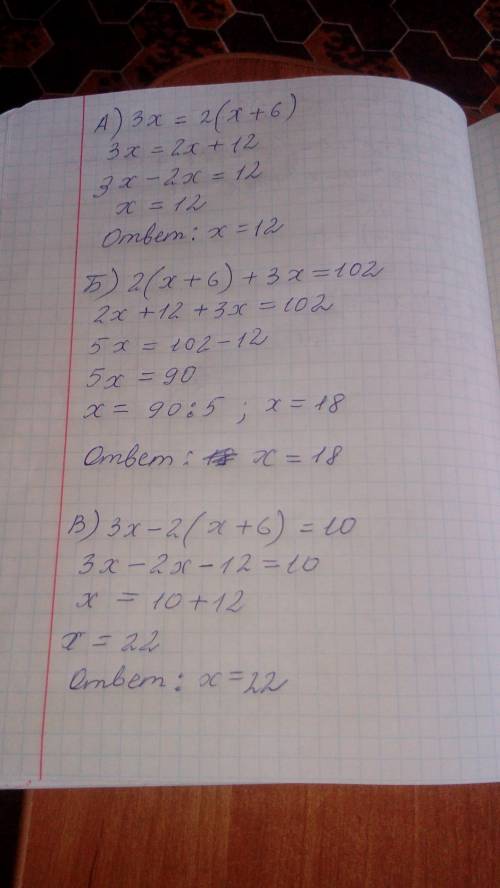 А) 3x = 2(x+6)
3x = 2x + 12
3x - 2x = 12
x = 12
Ответ: x = 12
Б) 2(x+6) + 3x = 102
2x + 12 + 3x = 102
5x = 102 - 12
5x = 90
x = 90:5 ; x = 18
Ответ: x = 18
В) 3x - 2(x+6) = 10
3x - 2x - 12 = 10
x = 10 + 12
x = 22
Ответ: x = 22